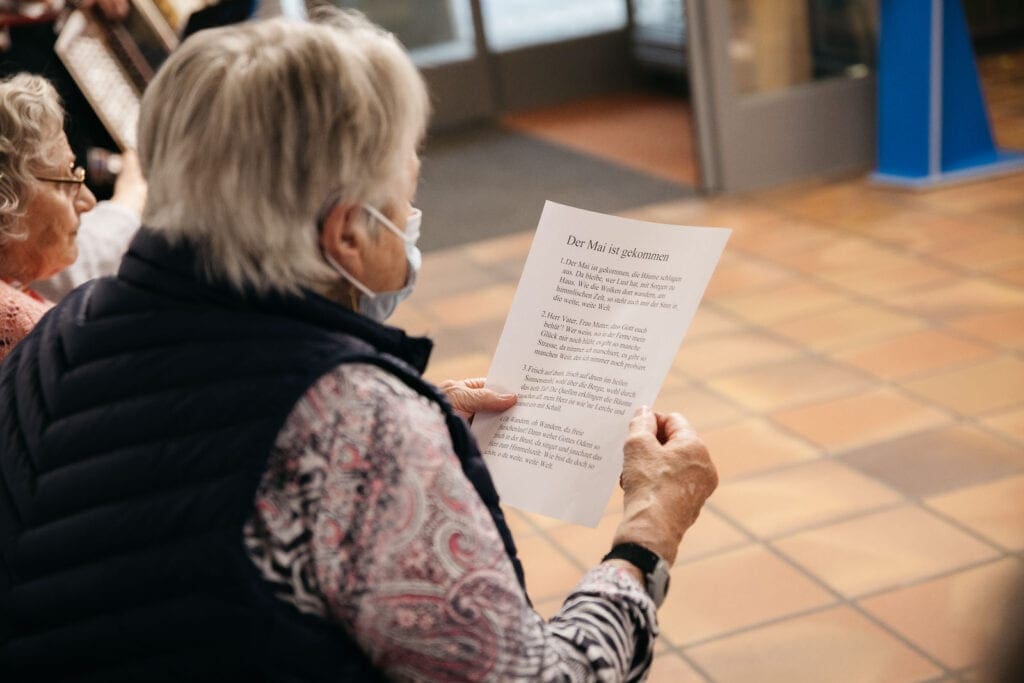 Der Mai ist gekommen
1. Der Mai ist gekommen, die Bäume schlagen
aus. Da bleibe, wer Lust hat, mit Sorgen zu
Haus. Wie die Wolken dort wandern, am
himmlischen Zelt, so steht auch mir der Sinn in
die weite, weite Welt.
2. Herr Vater, Frau Mutter, das Gott euch
behüt'! Wer weiss, wo in der Ferne mein
Glück mir noch blüht, es gibt so manche
Strasse, da nimmer ich marschiert, es gibt so
manchen Wein, den ich nimmer noch probiert.
3. Frisch auf drum, frisch auf drum im hellen
Sonnenstrahl, wohl über die Berge, wohl durch
das tiefe Tal! Die Quellen erklingen die Bäume
rauschen all, mein Herz ist wie 'ne Lerche und
mmet ein mit Schall.
Wandern, oh Wandern, du freie
schenlust! Dann wehet Gottes Odem so
sch in der Brust, da singet und jauchzet das
zum Himmelszelt: Wie bist du doch so
schön, o du weite, weite Welt.